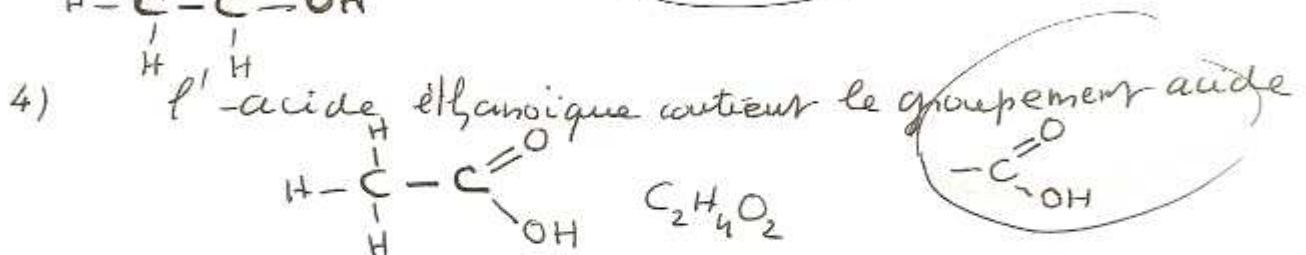 H – C – C – OH
H H
4) l'-acide éthanoïque contient le groupement acide
H
H – C – C = O
H
OH
C2H4O2
– C = O
OH